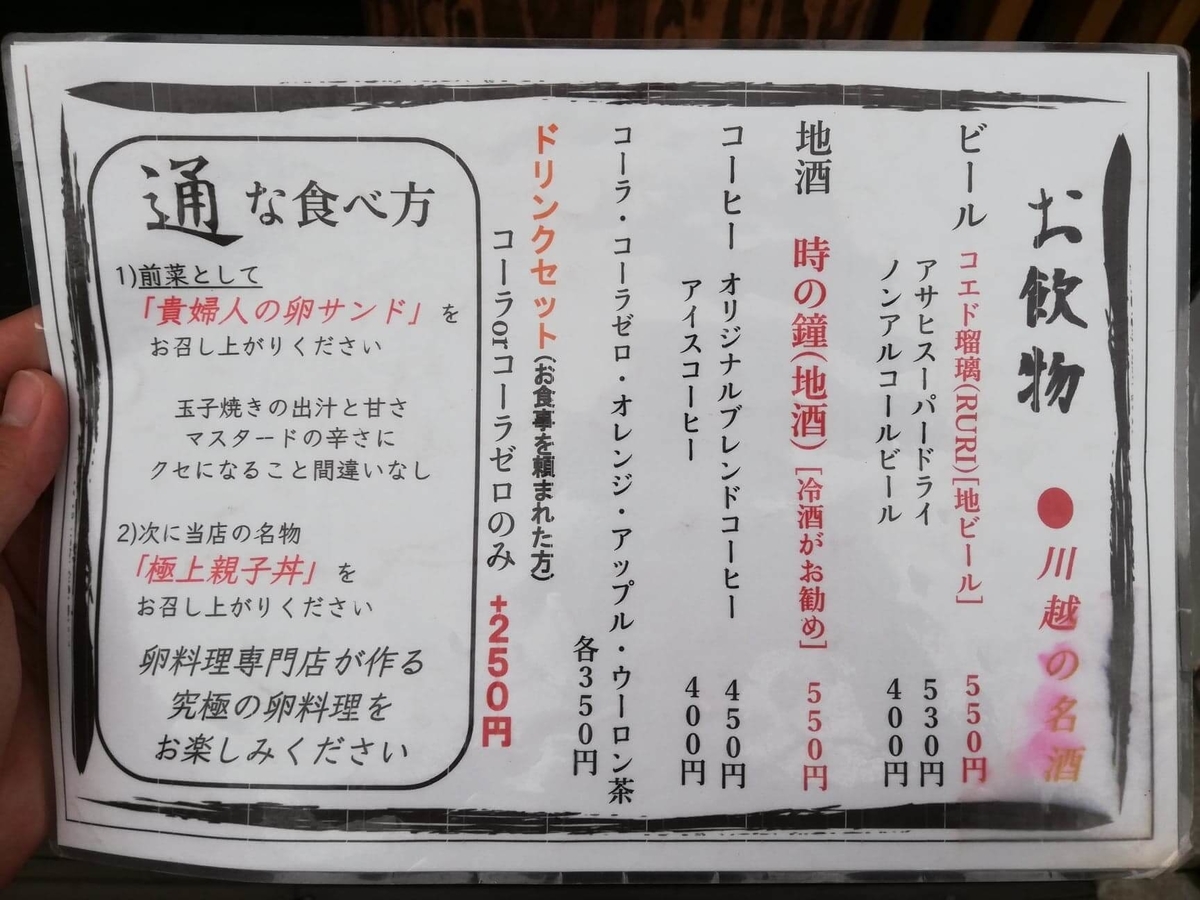 お飲物 ●川越の名酒
ビール コエド瑠璃(RURI)[地ビール] 550円
アサヒスーパードライ 530円
ノンアルコールビール 400円
地酒 時の鐘(地酒) [冷酒がお勧め] 550円
コーヒー オリジナルブレンドコーヒー 450円
アイスコーヒー 400円
コーラ・コーラゼロ・オレンジ・アップル・ウーロン茶
各350円
ドリンクセット(お食事を頼まれた方)
コーラorコーラゼロのみ +250円
通な食べ方
1)前菜として
「貴婦人の卵サンド」を
お召し上がりください
玉子焼きの出汁と甘さ
マスタードの辛さに
クセになること間違いなし
2)次に当店の名物
「極上親子丼」を
お召し上がりください
卵料理専門店が作る
究極の卵料理を
お楽しみください